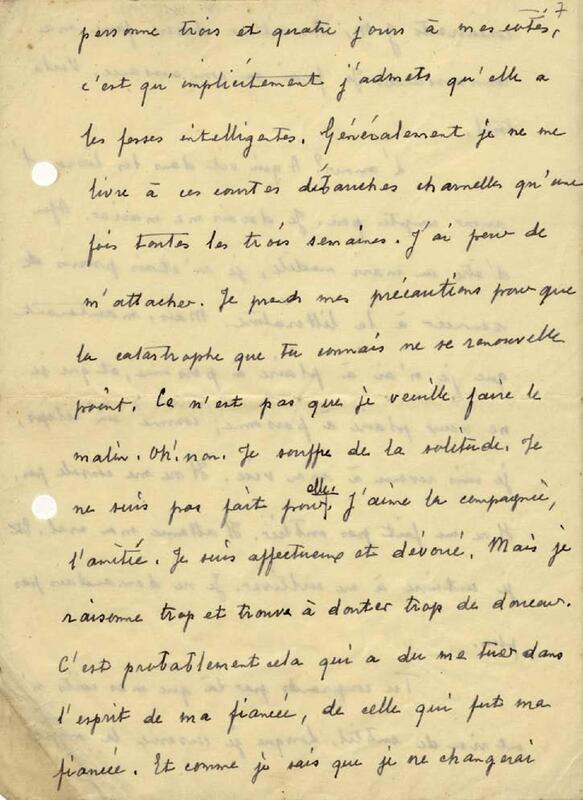 7
personne trois et quatre jours à mes cotés,
c'est qu'implicitement j'admets qu'elle a
les fesses intelligentes. Généralement je ne me
livre à ces courtes débauches charnelles qu'une
fois toutes les trois semaines. J'ai peur de
m'attacher. Je prends mes précautions pour que
la catastrophe que tu connais ne se renouvelle
point. Ce n'est pas que je veuille faire le
malin. Oh! non. Je souffre de la solitude. Je
ne suis pas fait pour elle, j'aime la compagnie,
l'amitié. Je suis affectueux et dévoué. Mais je
raisonne trop et trouve à douter trop de douceur.
C'est probablement cela qui a du me tuer dans
l'esprit de ma fiancée, de celle qui fut ma
fiancée. Et comme je sais que je ne changerai